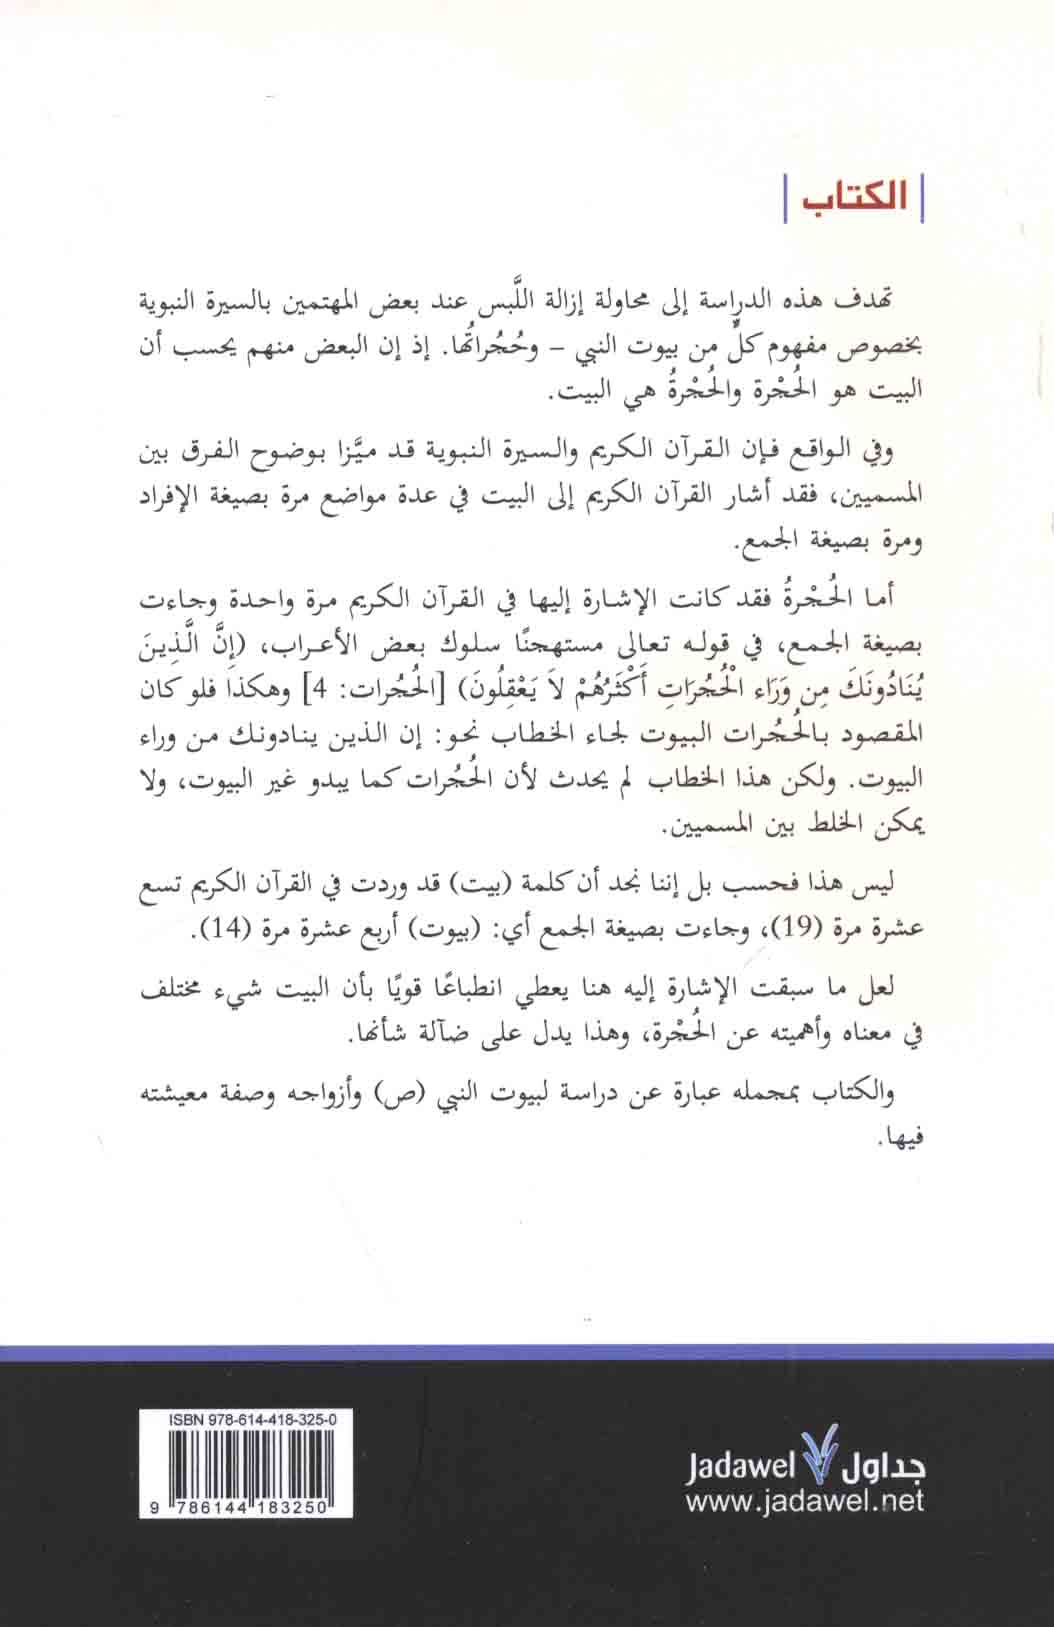 الكتاب
تهدف هذه الدراسة إلى محاولة إزالة اللَّبس عند بعض المهتمين بالسيرة النبوية
بخصوص مفهوم كلٍّ من بيوت النبي – وحُجُراتُها. إذ إن البعض منهم يحسب أن
البيت هو الحُجْرة والحُجْرةُ هي البيت.
وفي الواقع فإن القرآن الكريم والسيرة النبوية قد ميَّزا بوضوح الفرق بين
المسميين، فقد أشار القرآن الكريم إلى البيت في عدة مواضع مرة بصيغة الإفراد
ومرة بصيغة الجمع.
أما الحُجْرةُ فقد كانت الإشارة إليها في القرآن الكريم مرة واحدة وجاءت
بصيغة الجمع، في قوله تعالى مستهجنًا سلوك بعض الأعراب، (إِنَّ الَّذِينَ
يُنَادُونَكَ مِن وَرَاء الْحُجُرَاتِ أَكْثَرُهُمْ لاَ يَعْقِلُونَ) [الحُجُرات: 4] وهكذا فلو كان
المقصود بالحُجُرات البيوت لجاء الخطاب نحو: إن الذين ينادونك من وراء
البيوت. ولكن هذا الخطاب لم يحدث لأن الحُجُرات كما يبدو غير البيوت، ولا
يمكن الخلط بين المسميين.
ليس هذا فحسب بل إننا نجد أن كلمة (بيت) قد وردت في القرآن الكريم تسع
عشرة مرة (19)، وجاءت بصيغة الجمع أي: (بيوت) أربع عشرة مرة (14).
لعل ما سبقت الإشارة إليه هنا يعطي انطباعًا قويًا بأن البيت شيء مختلف
في معناه وأهميته عن الحُجْرة، وهذا يدل على ضآلة شأنها.
والكتاب بمجمله عبارة عن دراسة لبيوت النبي (ص) وأزواجه وصفة معيشته
فيها.
ISBN 978-614-418-325-0
9 786144 183250
Jadawel جداول
www.jadawel.net